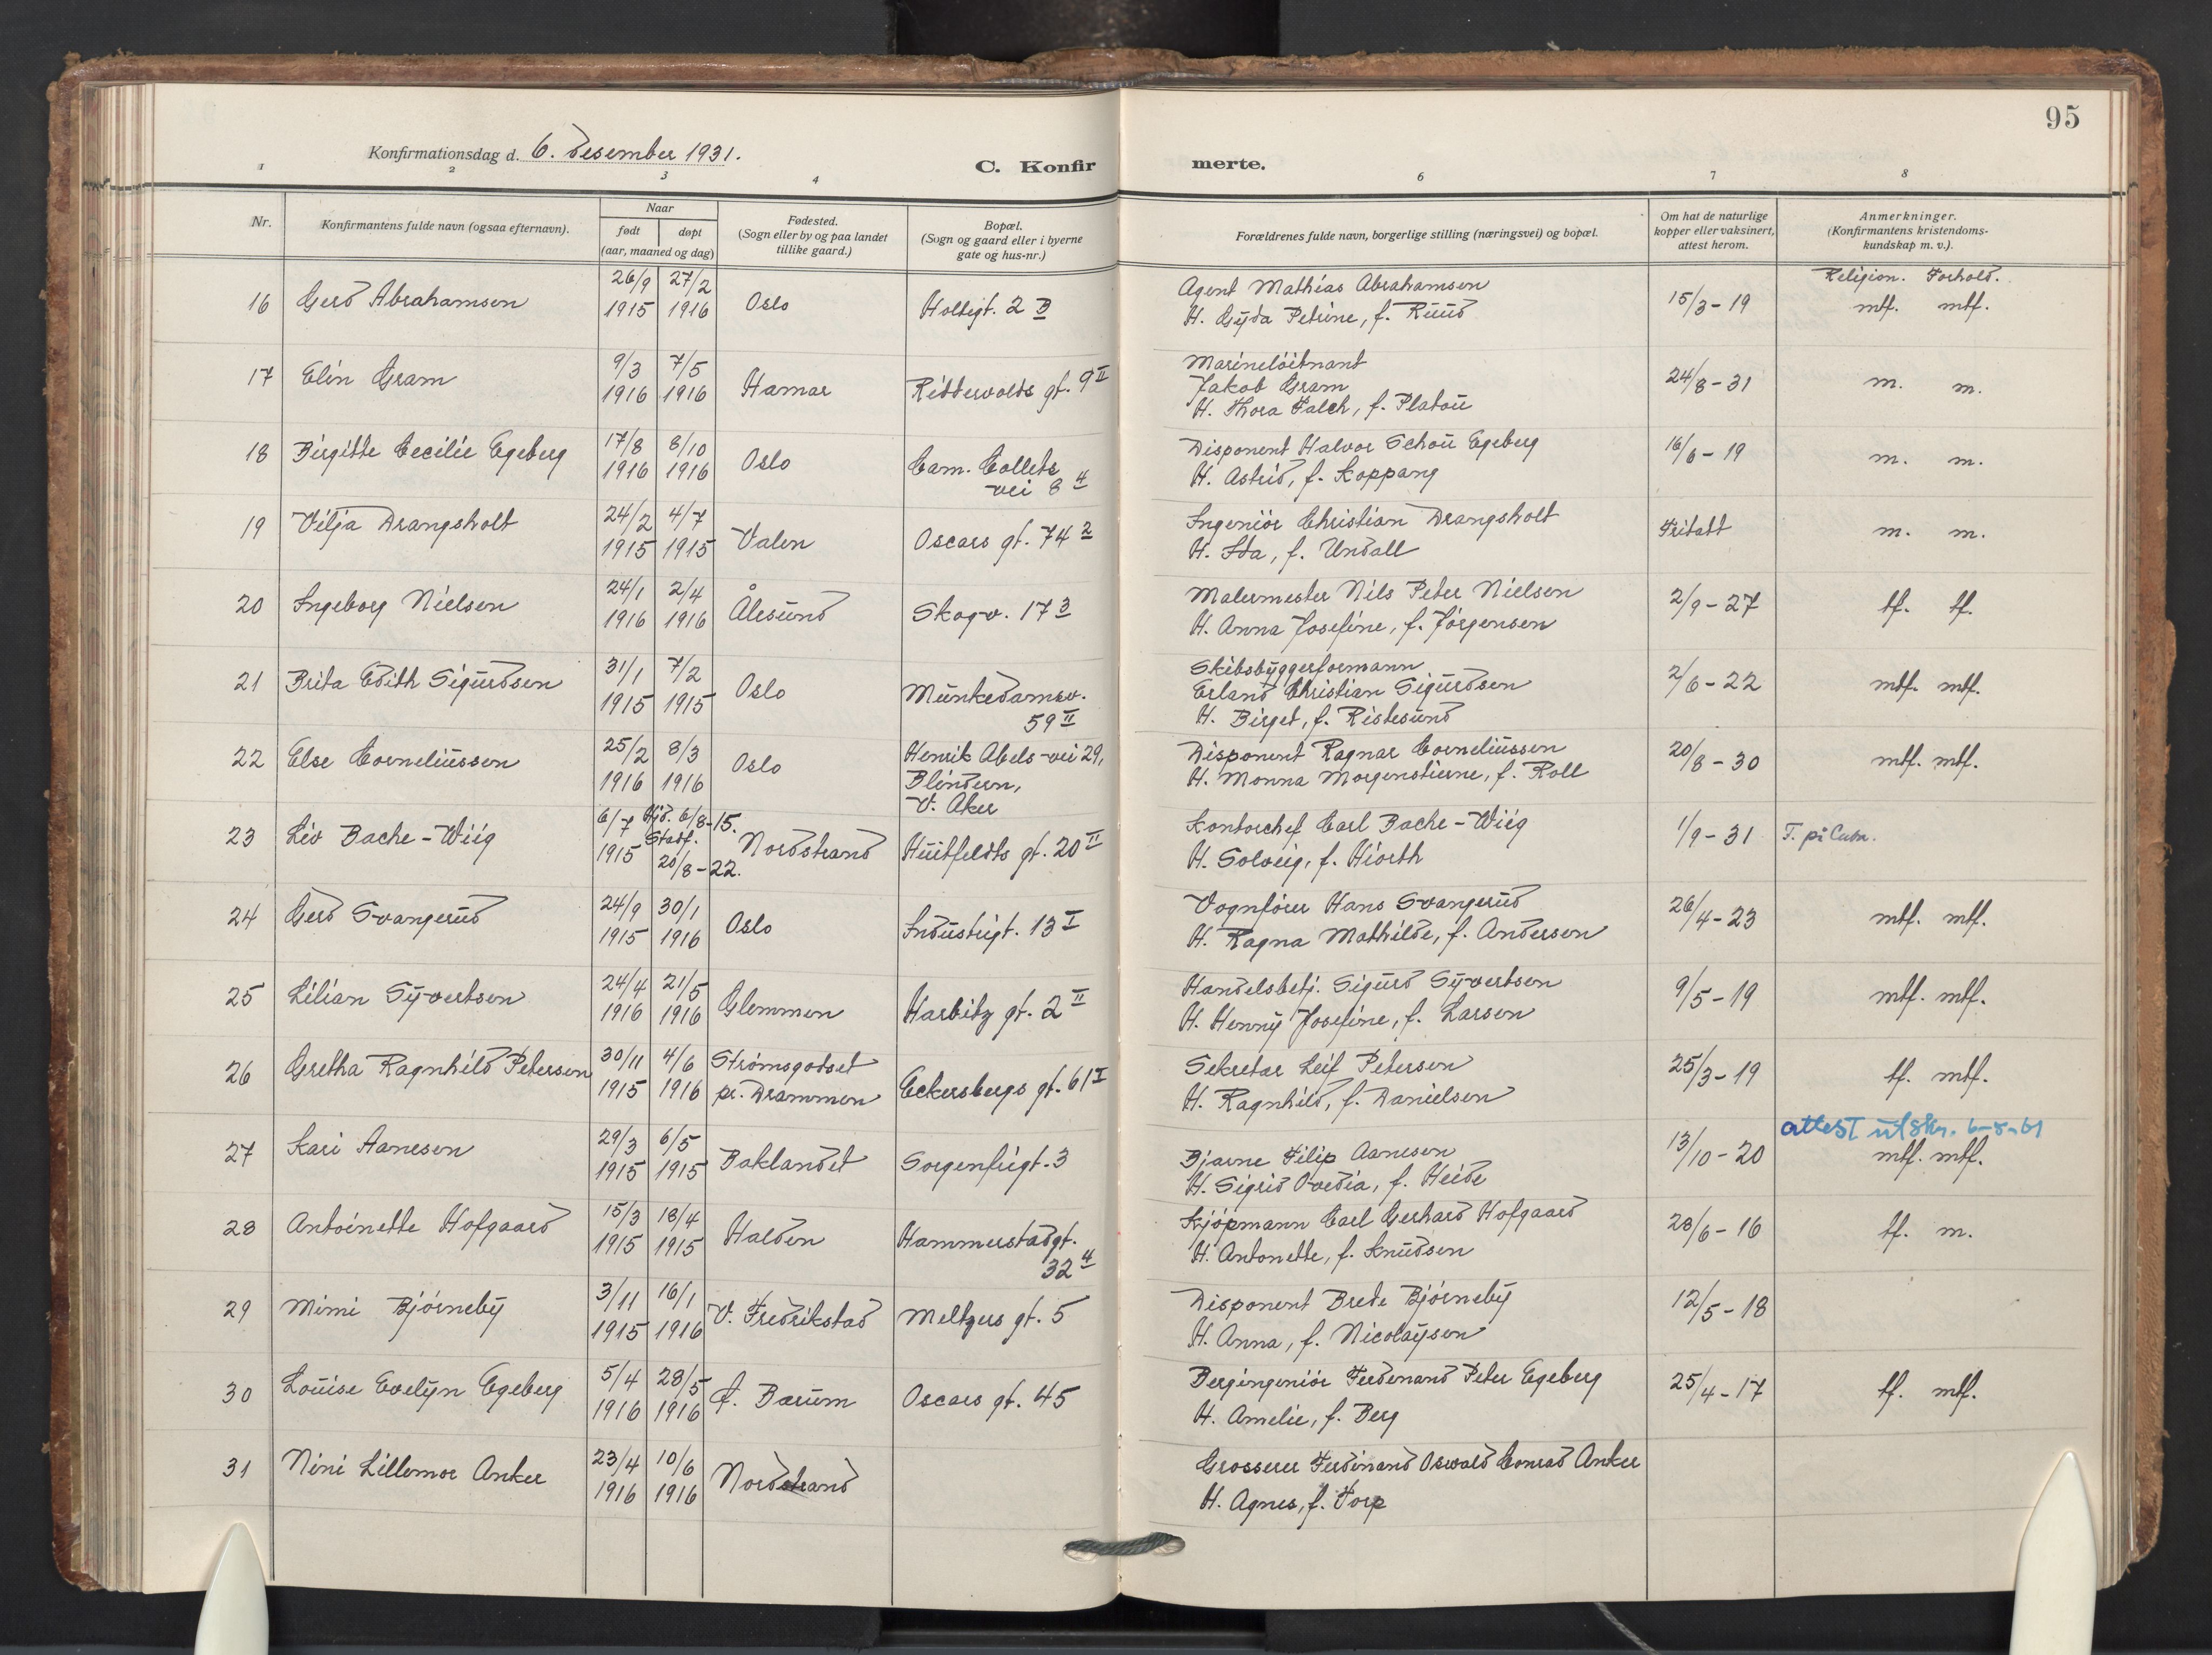 95
Konfirmationsdag d. 6. desember 1931.
C. Konfir merte.
1 2 3 4 6 7 8
Nr.
Konfirmantens fulde navn (ogsaa efternavn).
Naar
født døpt
(aar, maaned og dag)
Fødested.
(Sogn eller by og paa landet
tillike gaard.)
Bopæl.
(Sogn og gaard eller i byerne
gate og hus-nr.)
Forældrenes fulde navn, borgerlige stilling (næringsvei) og bopæl.
Om hat de naturlige
kopper eller vaksinert,
attest herom.
Anmerkninger.
(Konfirmantens kristendoms-
kundskap m. v.).
Religion. Forhold.
16 Gerd Abrahamsen 26/9 1915 27/2 1916 Oslo Holtegt. 2 B
Agent Mathias Abrahamsen
H. Gyda Petrine, f. Ruud
15/3 - 19 mtf. mtf.
17 Elin Gram 9/3 1916 7/5 1916 Hamar Riddervolds gt. 9 II
Marineløitnant
Jakob Gram
H. Thora Falch, f. Platou
24/8 - 31 m. m.
18 Birgitte Cecilie Egeberg 17/8 1916 8/10 1916 Oslo Cam. Colletts
vei 8 4
Disponent Halvor Schou Egeberg
H. Astrid, f. Koppang
16/6 - 19 m. m.
19 Vilja Drangsholt 24/2 1915 4/7 1915 Valen Oscars gt. 74 2
Ingeniør Christian Drangsholt
H. Ida, f. Undall
Fritatt m. m.
20 Ingeborg Nielsen 24/1 1916 2/4 1916 Ålesund Skogv. 17 3
Malermester Nils Peter Nielsen
H. Anna Josefine, f. Jørgensen
2/9 - 27 tf. tf.
21 Brita Edith Sigurdsen 31/1 1915 7/2 1915 Oslo Munkedamsv.
59 II
Skibsbyggerformann
Erland Christian Sigurdsen
H. Birget, f. Ristesund
2/6 - 22 mtf. mtf.
22 Else Corneliussen 25/2 1916 8/3 1916 Oslo Henrik Abels vei 29,
Blindern,
V. Aker
Disponent Ragnar Corneliussen
H. Monna Morgenstierne, f. Roll
20/8 - 30 mtf. mtf.
23 Liv Bache-Wiig 6/7 1915 Hjd. 6/8-15.
Stadf.
20/8-22. Nordstrand Huitfeldts gt. 20 II
Kontorchef Carl Bache-Wiig
H. Solveig, f. Hiorth
1/9 - 31
24 Gerd Svangerud 24/9 1915 30/1 1916 Oslo Industrigt. 13 I
Vognfører Hans Svangerud
H. Ragna Mathilde, f. Andersen
26/4 - 23 mtf. mtf.
25 Lilian Syvertsen 24/4 1916 21/5 1916 Glemmen Harbitz gt. 2 II
Handelsbetj. Sigurd Syvertsen
H. Henny Josefine, f. Larsen
9/5 - 19 mtf. mtf.
26 Gretha Ragnhild Petersen 30/11 1915 4/6 1916 Strømsgodset
pr. Drammen Eckersbergs gt. 61 I
Sekretær Leif Petersen
H. Ragnhild, f. Danielsen
25/3 - 19 tf. mtf.
27 Kari Aanesen 29/3 1915 6/5 1915 Baklandet Sorgenfrigt. 3
Bjarne Filip Aanesen
H. Sigrid Ovedia, f. Heide
13/10 - 20 attest utskr. 6-5-61
mtf. mtf.
28 Antoinette Hofgaard 15/3 1915 18/4 1915 Halden Hammerstadgt.
32 4
Kjøpmann Carl Gerhard Hofgaard
H. Antonette, f. Knudsen
28/6 - 16 tf. m.
29 Mimi Bjørneby 3/11 1915 16/1 1916 V. Fredrikstad Meltzers gt. 5
Disponent Brede Bjørneby
H. Anna, f. Nicolaysen
12/5 - 18
30 Louise Evelyn Egeberg 5/4 1916 28/5 1916 Bærum Oscars gt. 45
Bergingeniør Ferdenand Peter Egeberg
H. Amelie, f. Berg
25/4 - 17 tf. mtf.
31 Nini Lillemor Anker 23/4 1916 10/6 1916 Nordstrand
Grosserer Ferdinand Oswald Conrad Anker
H. Agnes, f. Torp